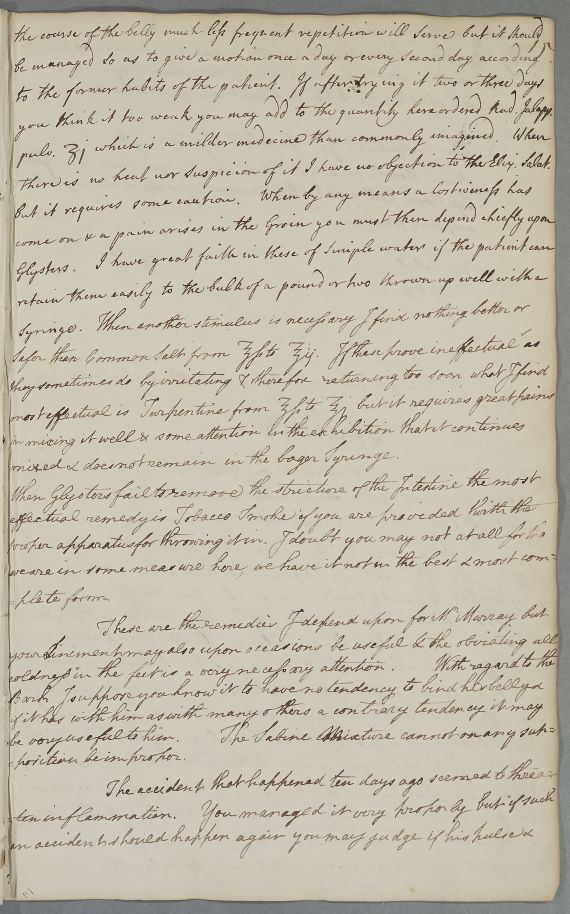 the course of the belly much less frequent repetition will serve but it should
be managed so as to give a motion once a day or every second day according
to the former habits of the patient. If after trying it two or three days
you think it too weak you may add to the quantity here ordered Rad. Jalapp.
pulv. ʒj which is a milder medecine than commonly imagined. When
there is no heat nor suspicion of it I have no objection to the Elix. Salut.
but it requires some caution. When by any means a Costiveness has
come on & a pain arises in the Groin you must then depend chiefly upon
Glysters. I have great faith in these of Simple water if the patient can
retain them easily to the bulk of a pound or two thrown up well with a
Syringe. When another stimulus is necessary I find nothing better or
safer than Common Salt from ℥ss to ℥ij. If these prove ineffectual as
they sometimes do by irritating & therefor returning too soon what I find
most effectual is Turpentine from ℥ss to ℥j but it requires great pains
in mixing it well & some attention in the exhibition that it continues
mixed & does not remain in the bag or Syringe.
When Glysters fail to remove the stricture of the Intestine the most
effectual remedy is Tobacco Smoke if you are provided with the
proper apparatus for throwing it in. I doubt you may not at all for tho
we are in some measure here, we have it not in the best & most com=
=plete form.
These are the remedies I depend upon for Mr. Murray but
your Liniment may also upon occasions be useful & the obviating all
coldness in the feet is a very necessary attention. With regard to the
Bark I suppose you know it to have no tendency to bind his belly &
if it has with him as with many others a contrary tendency it may
be very useful to him. The Saline Mixture cannot on any sup=
=position be improper.
The accident that happened ten days ago seemed to threa=
=ten inflammation. You managed it very properly but if such
an accident should happen again you may judge if his pulse &